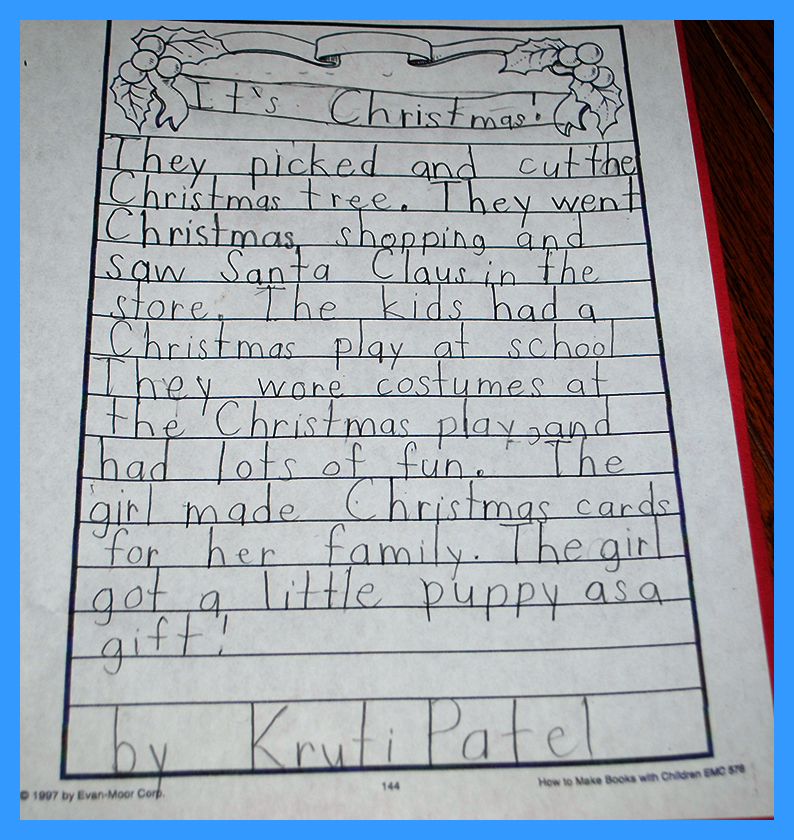 It's Christmas!
They picked and cut the
Christmas tree. They went
Christmas, shopping and
saw Santa Claus in the
store. The kids had a
Christmas play at school
They wore costumes at
the Christmas play, and
had lots of fun. The
girl made Christmas cards
for her family. The girl
got a little puppy as a
gift!
by Kruti Patel
© 1997 by Evan-Moor Corp.
144
How to Make Books with Children EMC 576